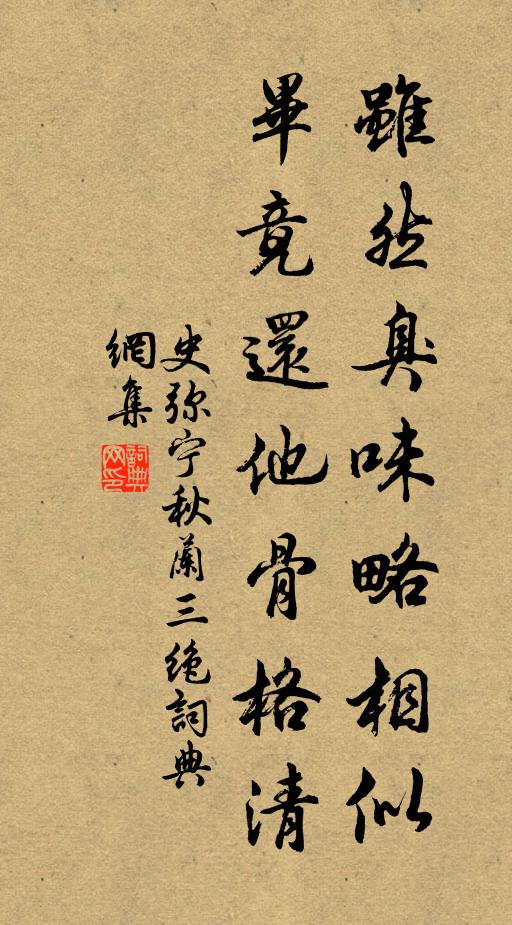 雖然臭味略相似
畢竟還他骨格清
史弥宁秋蘭三绝詞典
網集
詞典
网印